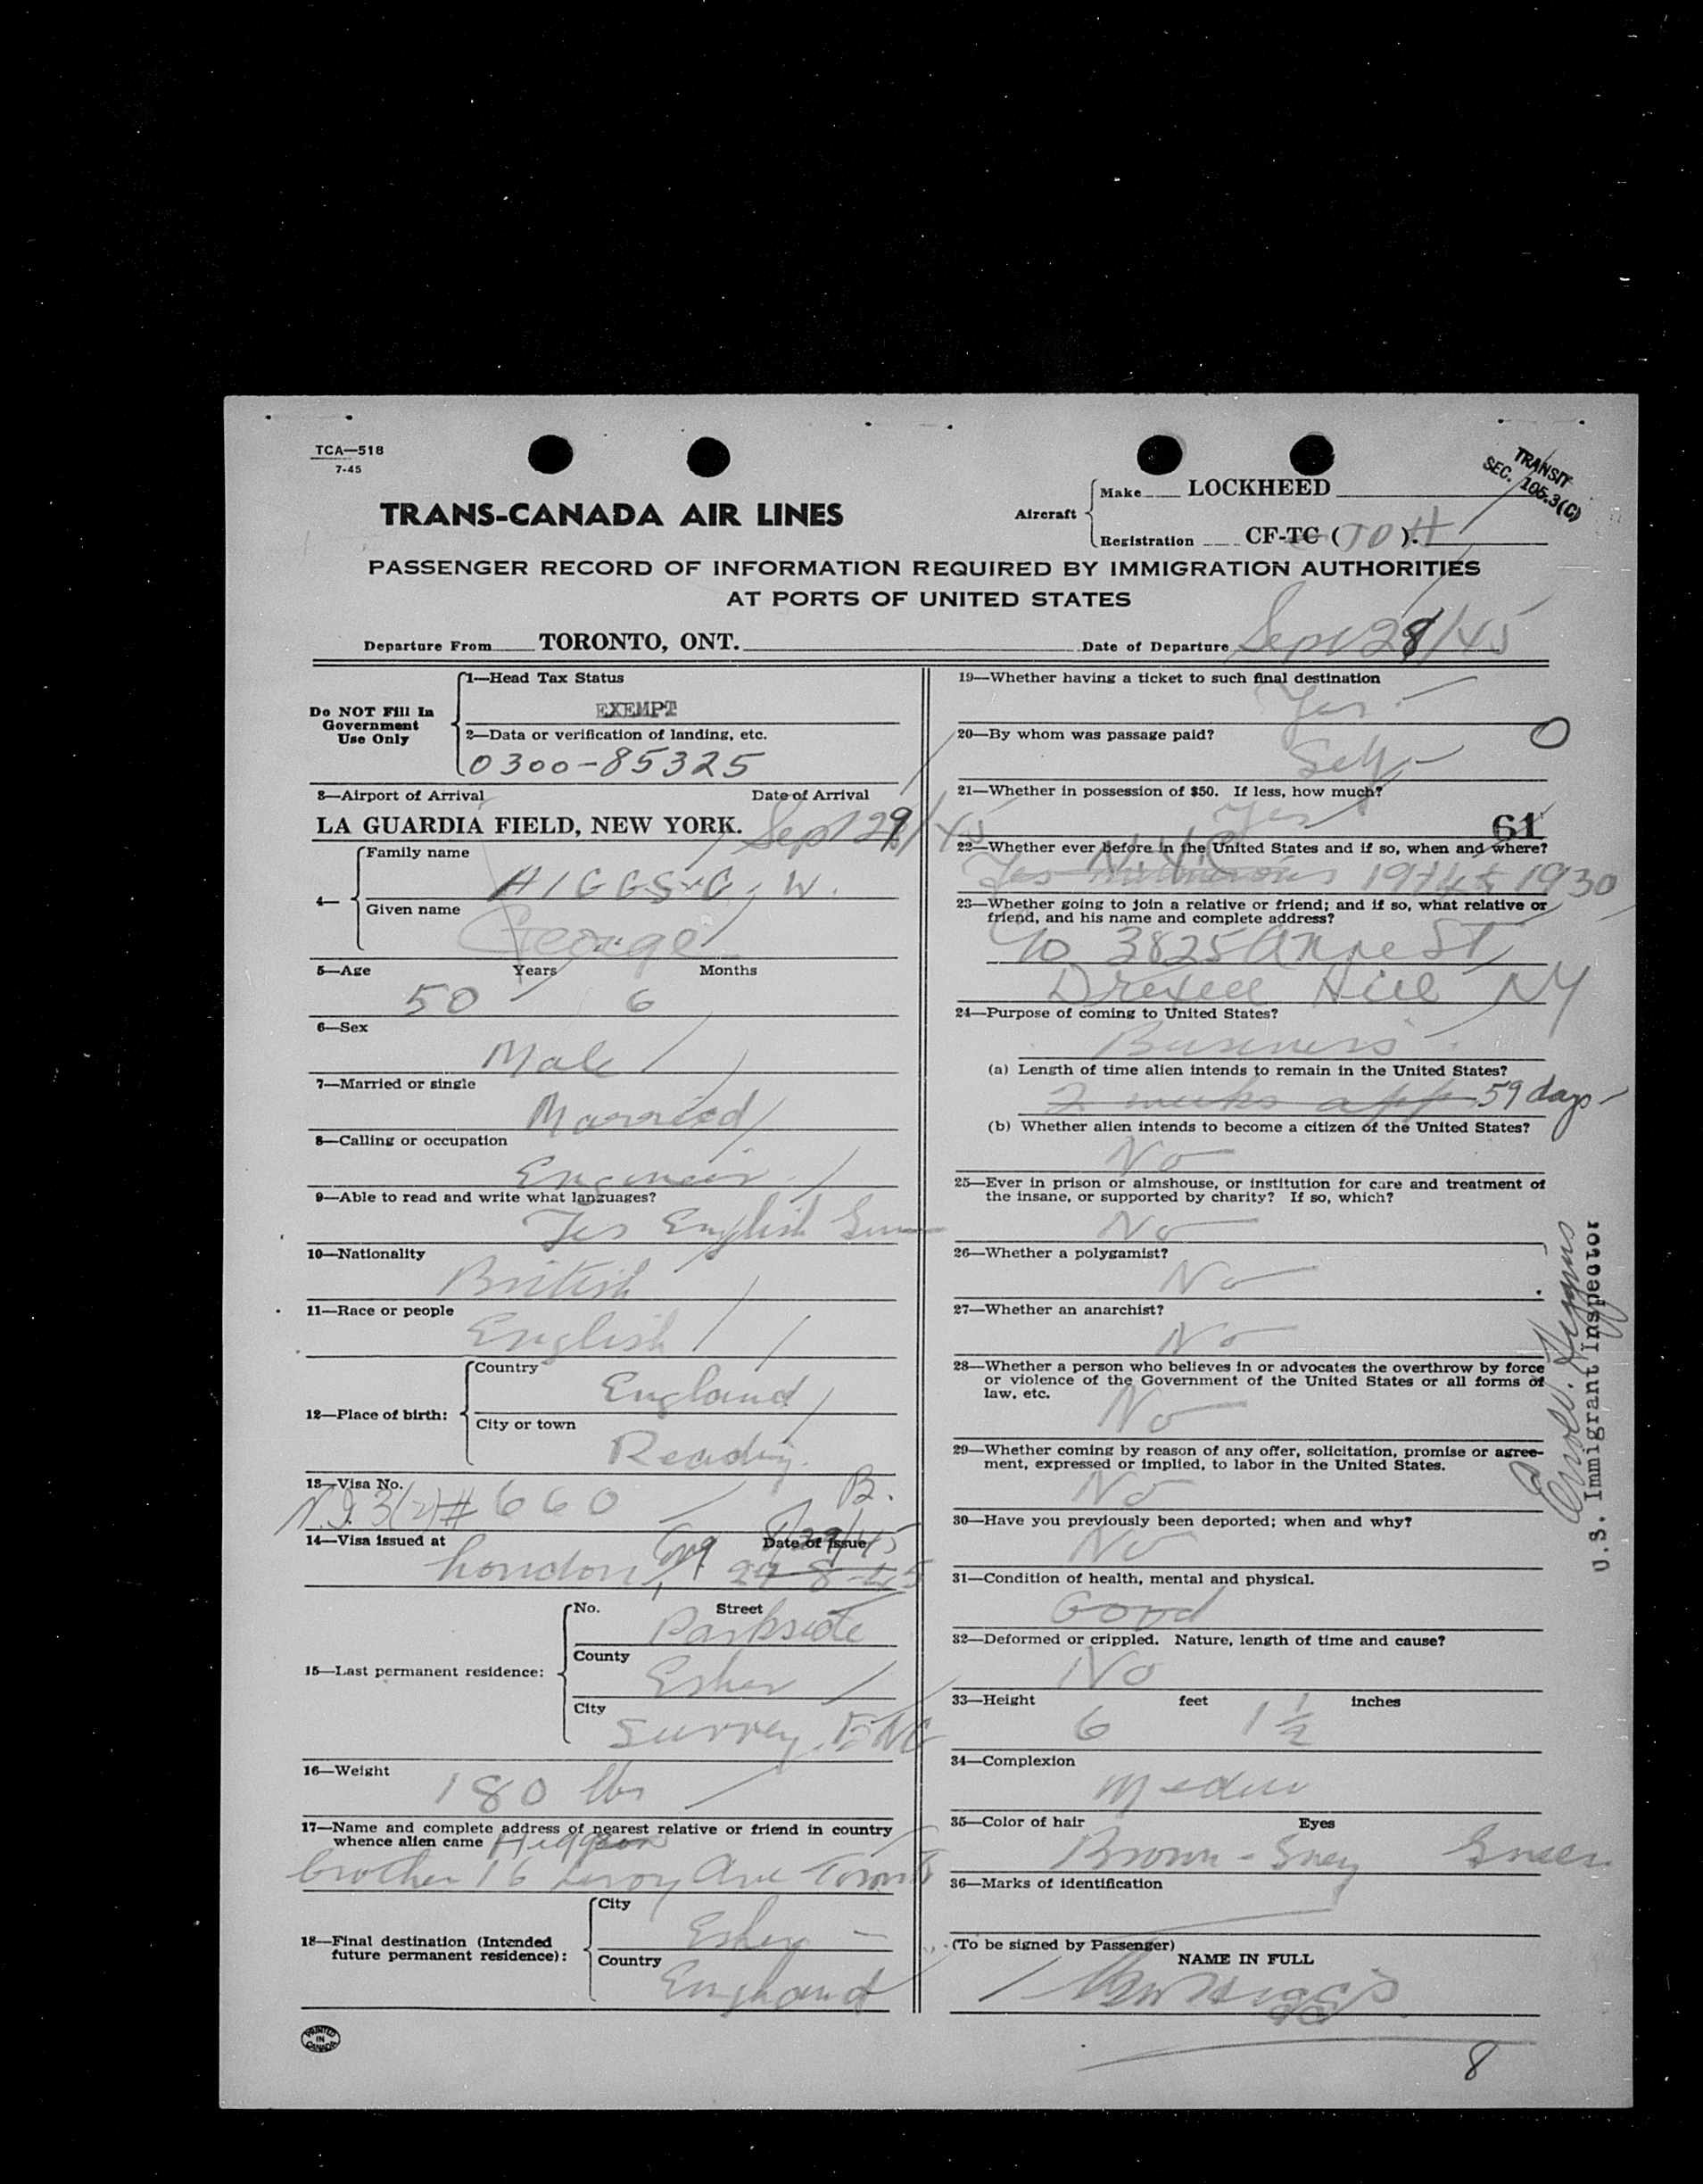 TCA—518
7-45
TRANS-CANADA AIR LINES
Aircraft
Make LOCKHEED
Registration CF-TC (TOH).
TRANSIT
SEC. 105.3(C)
PASSENGER RECORD OF INFORMATION REQUIRED BY IMMIGRATION AUTHORITIES
AT PORTS OF UNITED STATES
Departure From TORONTO, ONT. Date of Departure Sept 28/45
Do NOT Fill In
Government
Use Only
1—Head Tax Status
EXEMPT
2—Data or verification of landing, etc.
0300-85325
3—Airport of Arrival Date of Arrival
LA GUARDIA FIELD, NEW YORK. Sept 29/45
4—
Family name
HIGGS G. W.
Given name
George
5—Age Years Months
50 6
6—Sex
Male
7—Married or single
Married
8—Calling or occupation
Engineer
9—Able to read and write what languages?
Yes English
10—Nationality
British
11—Race or people
English
12—Place of birth:
Country
England
City or town
Reading
13—Visa No.
#660 B.
14—Visa issued at Date of Issue
8/29/45
London, Eng. 29-8-45
15—Last permanent residence:
No. Street
Parkside
County
Esher
City
Surrey. ENG
16—Weight
180 lbs
17—Name and complete address of nearest relative or friend in country
whence alien came
brother 16 Leroy Ave Toronto
18—Final destination (Intended
future permanent residence):
City
Esher
Country
England
PRINTED
IN
CANADA
19—Whether having a ticket to such final destination
Yes
20—By whom was passage paid?
Self
0
21—Whether in possession of $50. If less, how much?
Yes
61
22—Whether ever before in the United States and if so, when and where?
Yes N.Y.C. 1930
23—Whether going to join a relative or friend; and if so, what relative or
friend, and his name and complete address?
3825 Anne St
Drexel Hill NY
24—Purpose of coming to United States?
Business
(a) Length of time alien intends to remain in the United States?
2 weeks app 59 days
(b) Whether alien intends to become a citizen of the United States?
No
25—Ever in prison or almshouse, or institution for care and treatment of
the insane, or supported by charity? If so, which?
No
26—Whether a polygamist?
No
27—Whether an anarchist?
No
28—Whether a person who believes in or advocates the overthrow by force
or violence of the Government of the United States or all forms of
law, etc.
No
29—Whether coming by reason of any offer, solicitation, promise or agree-
ment, expressed or implied, to labor in the United States.
No
30—Have you previously been deported; when and why?
No
31—Condition of health, mental and physical.
Good
32—Deformed or crippled. Nature, length of time and cause?
No
33—Height feet inches
6 1 1/2
34—Complexion
35—Color of hair Eyes
Brown - Grey Green
36—Marks of identification
(To be signed by Passenger)
NAME IN FULL
Higgs
8
U.S. Immigrant Inspector